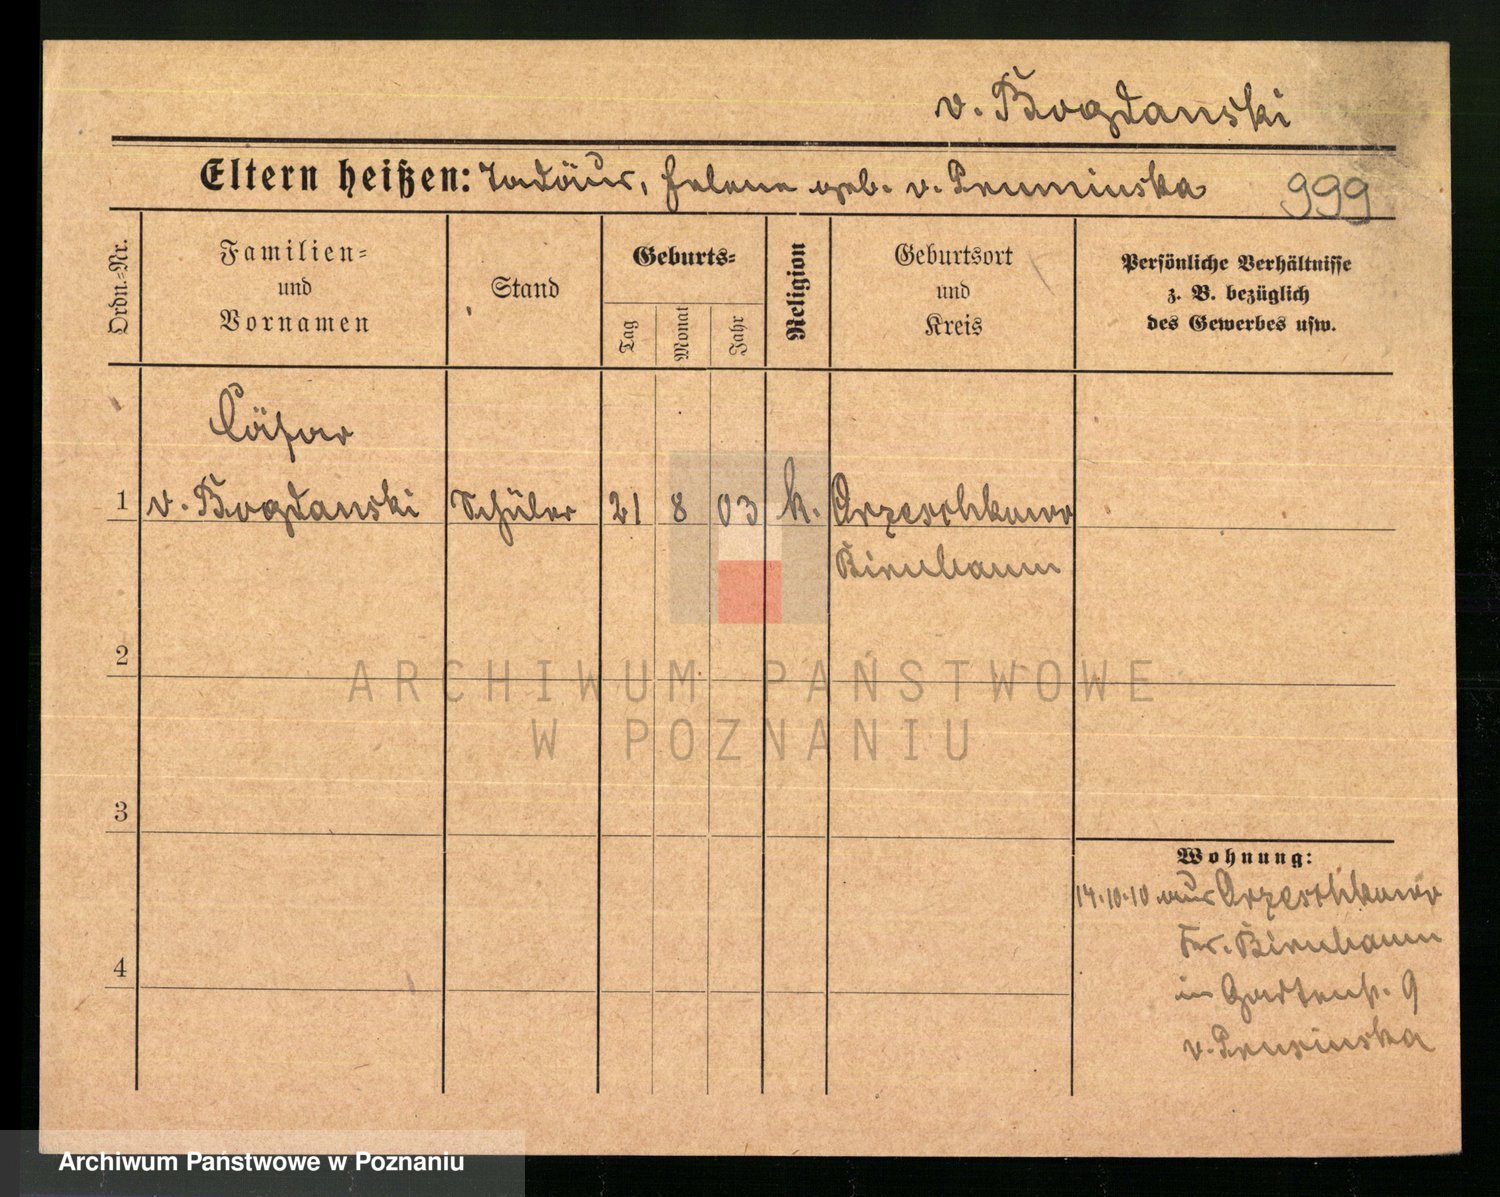 v. Bogdanski
Eltern heißen: Tadäus, Helene geb. v.
999
Ordn.-Nr.
Familien-
und
Vornamen
Stand
Geburts-
Tag
Monat
Jahr
Religion
Geburtsort
und
Kreis
Persönliche Verhältnisse
z. B. bezüglich
des Gewerbes usw.
Cäsar
1 v. Bogdanski Schüler 21 8 03 k. Orzeschkowo
Birnbaum
2
ARCHIWUM PAŃSTWOWE
W POZNANIU
3
Wohnung:
14.10.10 aus Orzeschkowo
Krs. Birnbaum
4
in Gartenst. 9
v. Prusinska
Archiwum Państwowe w Poznaniu